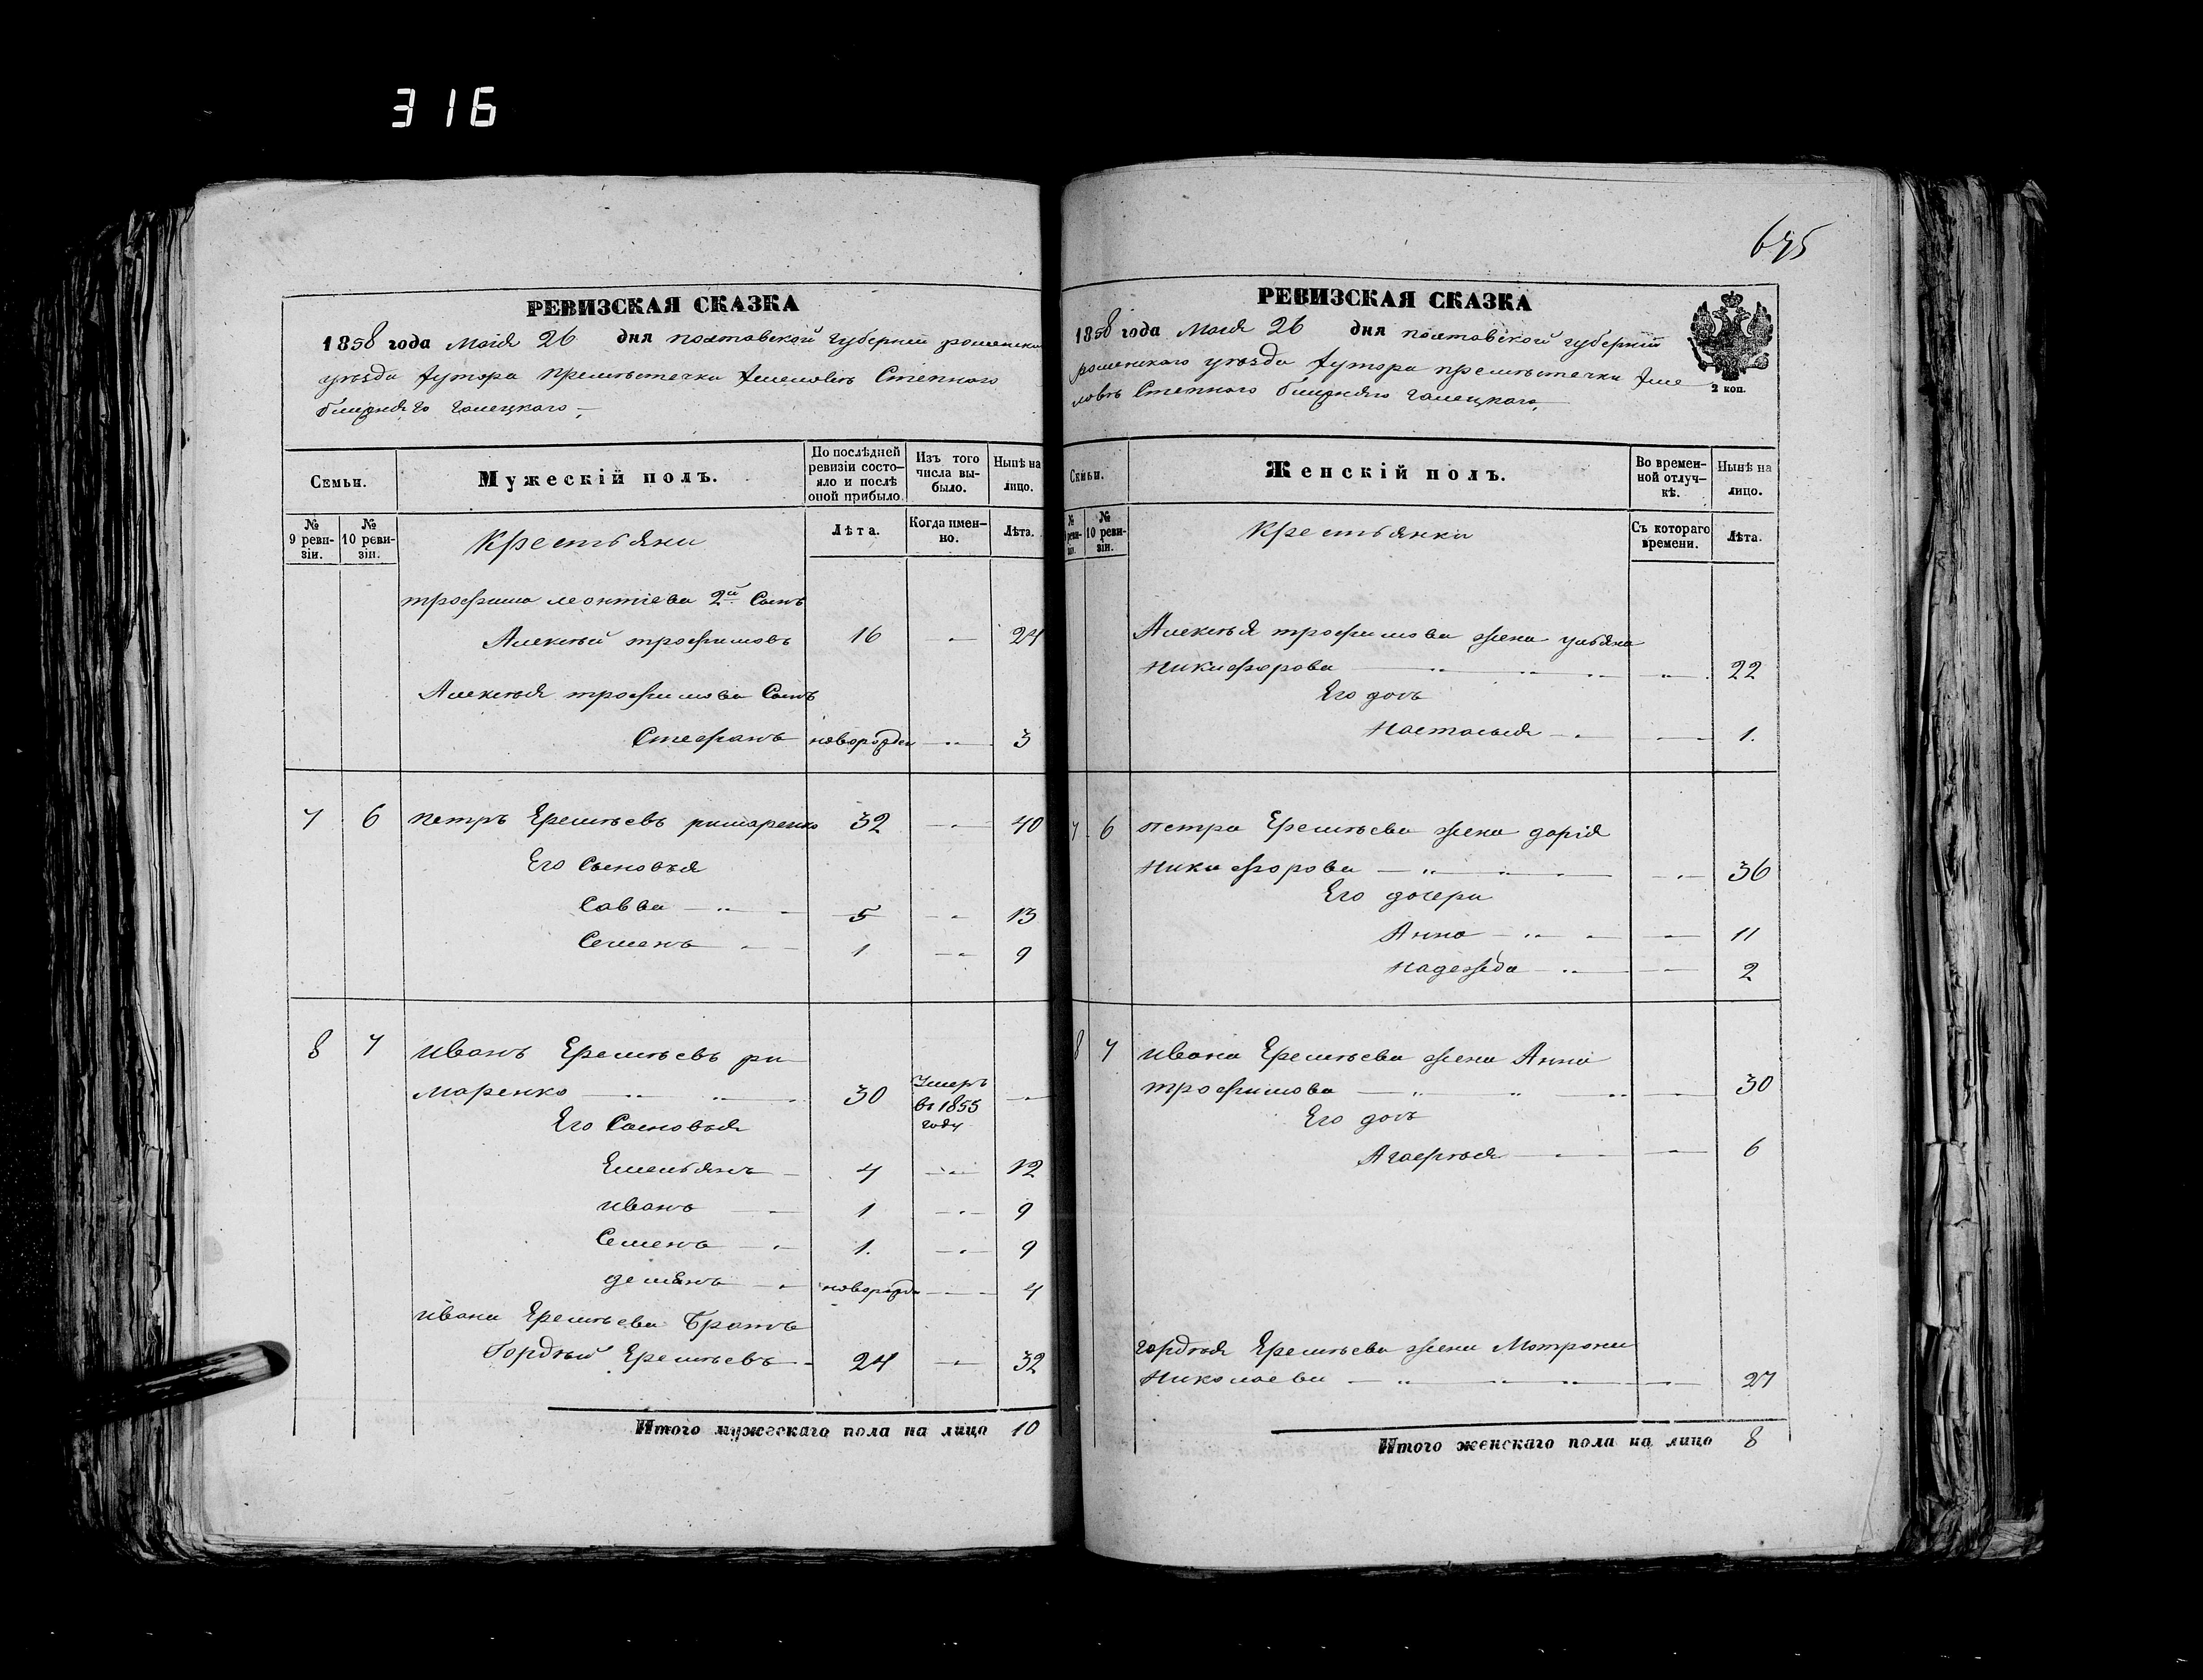 316
РЕВИЗСКАЯ СКАЗКА
1858 года Маія 26 дня полтавской губерніи роменска
уезда хутора
Степного
РЕВИЗСКАЯ СКАЗКА
675
1858 года Маія 26 дня полтавской губерніи
роменского уезда хутора
Степного
2 коп.
Семьи.
Мужескій полъ.
До послѣдней ревизіи состо-
яло и послѣ оной прибыло.
Изъ того числа вы-
было.
Нынѣ на лицо.
№ 9 реви-
зіи.
№ 10 реви-
зіи.
Крестьяни
Лѣта.
Когда имен-
но.
Лѣта.
трофима леонтіева 2й Сынъ
Алексѣй трофимовъ 16 24
Алексѣя трофимова Сынъ
Стефанъ новорожден 3
7 6 петръ Еремѣевъ римаренко 32 40
Его Сыновья
Савва 5 13
Семенъ 1 9
8 7 иванъ Еремѣевъ ри
маренко 30 Умеръ въ 1855 году
Его Сыновья
Емельянъ 4 12
иванъ 1 9
Семенъ 1. 9
демянъ новорожде 4
ивана Еремѣева Братъ
Гордѣй Еремѣевъ 24 32
Итого мужескаго пола на лицо 10
Семьи.
Женскій полъ.
Во времен-
ной отлуч-
кѣ.
Нынѣ на лицо.
№ 9 реви-
зіи.
№ 10 реви-
зіи.
Крестьянки
Съ котораго времени.
Лѣта.
Алексѣя трофимова жена ульяна
Никифорова 22
Его дочь
Настасья 1.
7 6 петра Еремѣева жена дарія
Никифорова 36
Его дочери
Анна 11
Надежда 2
8 7 ивана Еремѣева жена Анна
трофимова 30
Его дочь
Агафѣя 6
гордѣя Еремѣева жена Мотрона
Николаева 27
Итого женскаго пола на лицо 8